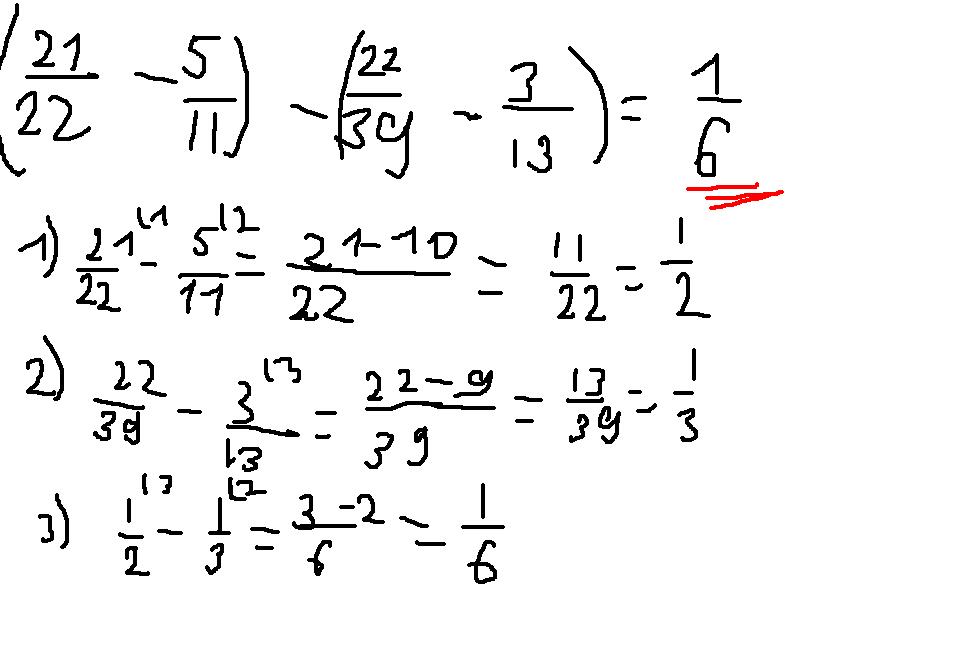 (21/22 - 5/11) - (22/39 - 3/13) = 1/6
1) 21/22 ⁽¹ - 5/11 ⁽² = 21-10/22 = 11/22 = 1/2
2) 22/39 - 3/13 ⁽³ = 22-9/39 = 13/39 = 1/3
3) 1/2 ⁽³ - 1/3 ⁽² = 3-2/6 = 1/6